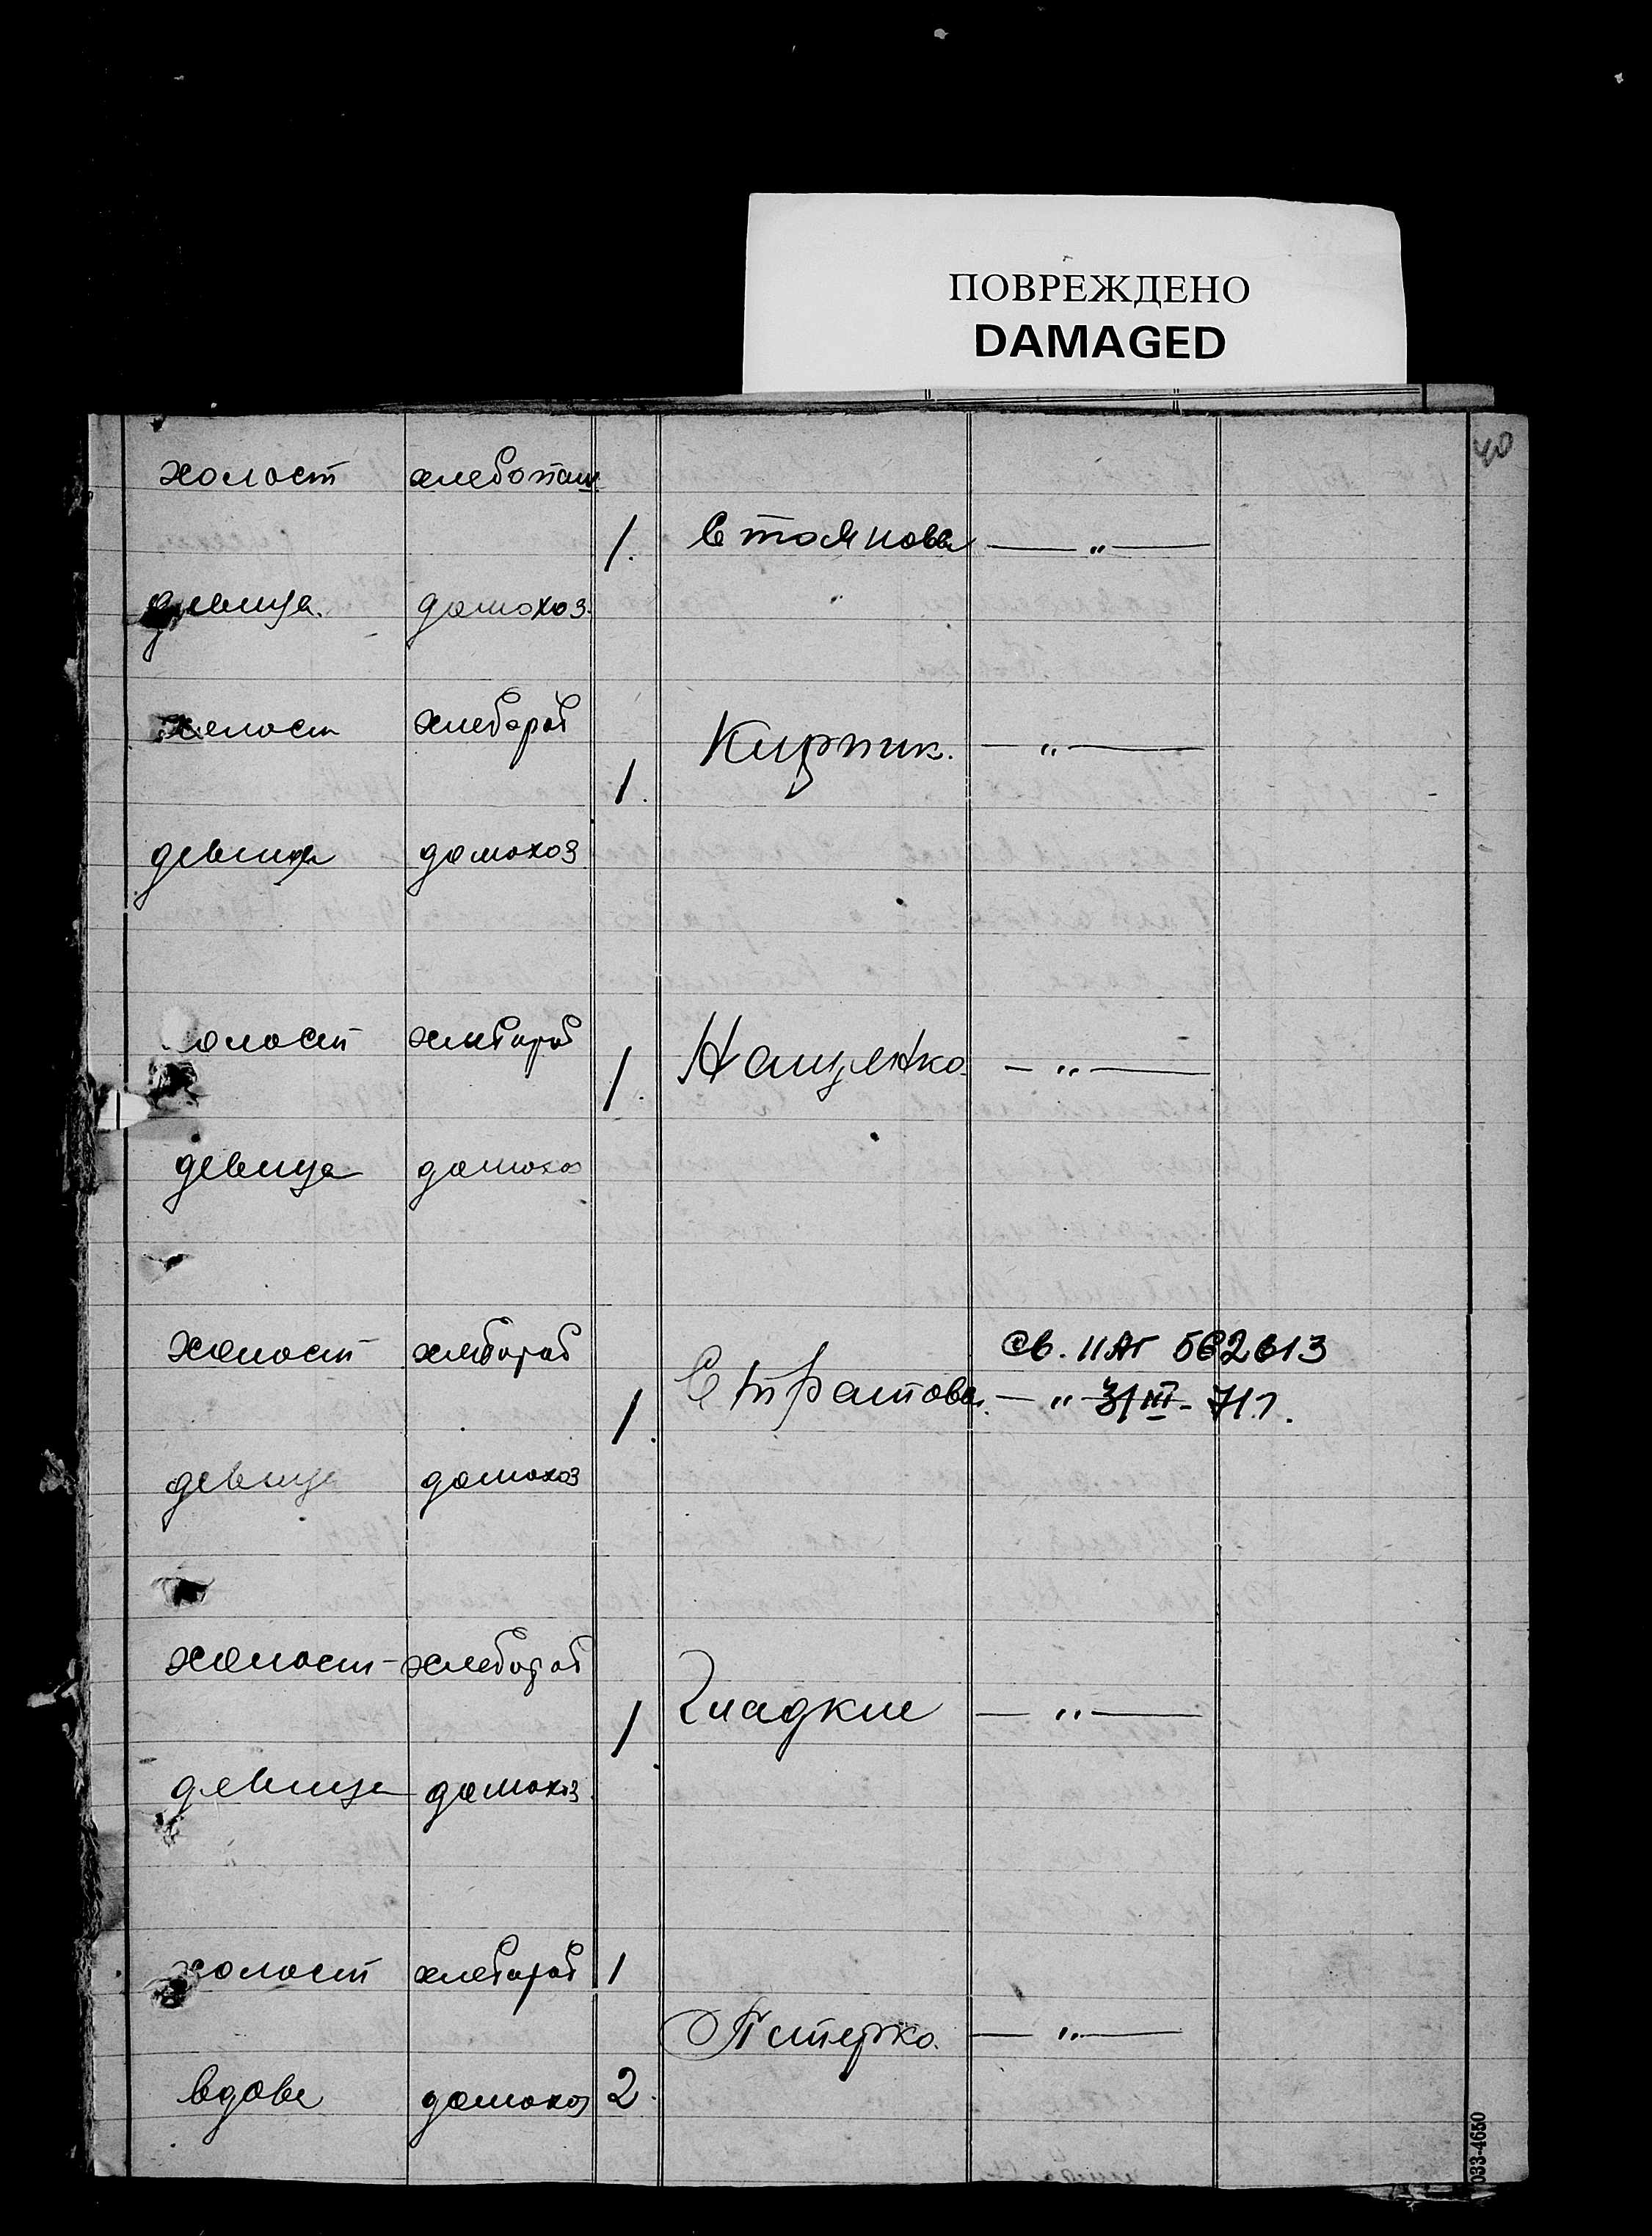 ПОВРЕЖДЕНО
DAMAGED
40
холост хлебопаш.
1. Стояновы — " —
девица. домохоз. "
холост хлебороб
Кирпик. — " —
1.
девица домохоз
холост хлебороб
1. Нащенко — " —
девица домохоз
холост хлебороб св. IIАГ 562613
1. Стратовы. — " 31/III - 71г.
девица домохоз
холост - хлебороб
1 Гладкие — " —
девица домохоз.
холост хлебороб 1
Питерко. — " —
вдова домохоз 2.
033-4650